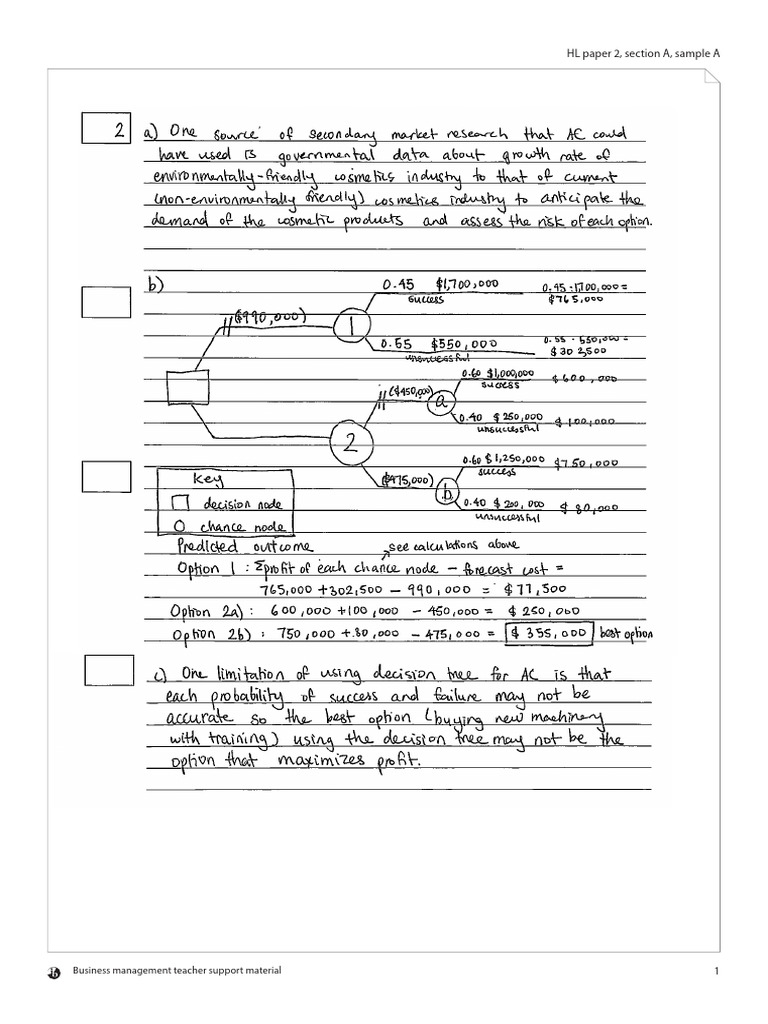 HL paper 2, section A, sample A
2
a) One source of secondary market research that AC could
have used is governmental data about growth rate of
environmentally-friendly cosmetics industry to that of current
(non-environmentally friendly) cosmetics industry to anticipate the
demand of the cosmetic products and assess the risk of each option.
b)
0.45 $1,700,000
success
0.45 · 1,700,000 =
$765,000
($990,000)
1
0.55 $550,000
unsuccessful
0.55 · 550,000 =
$302,500
2
($450,000)
a
0.60 $1,000,000
success
$600,000
0.40 $250,000
unsuccessful
$100,000
($475,000)
b
0.60 $1,250,000
success
$750,000
0.40 $200,000
unsuccessful
$80,000
Key
decision node
chance node
Predicted outcome
see calculations above
Option 1 : Σprofit of each chance node - forecast cost =
765,000 + 302,500 - 990,000 = $77,500
Option 2a) : 600,000 + 100,000 - 450,000 = $250,000
Option 2b) : 750,000 + 80,000 - 475,000 = $355,000 best option
c) One limitation of using decision tree for AC is that
each probability of success and failure may not be
accurate so the best option (buying new machinery
with training) using the decision tree may not be the
option that maximizes profit.
Business management teacher support material
1